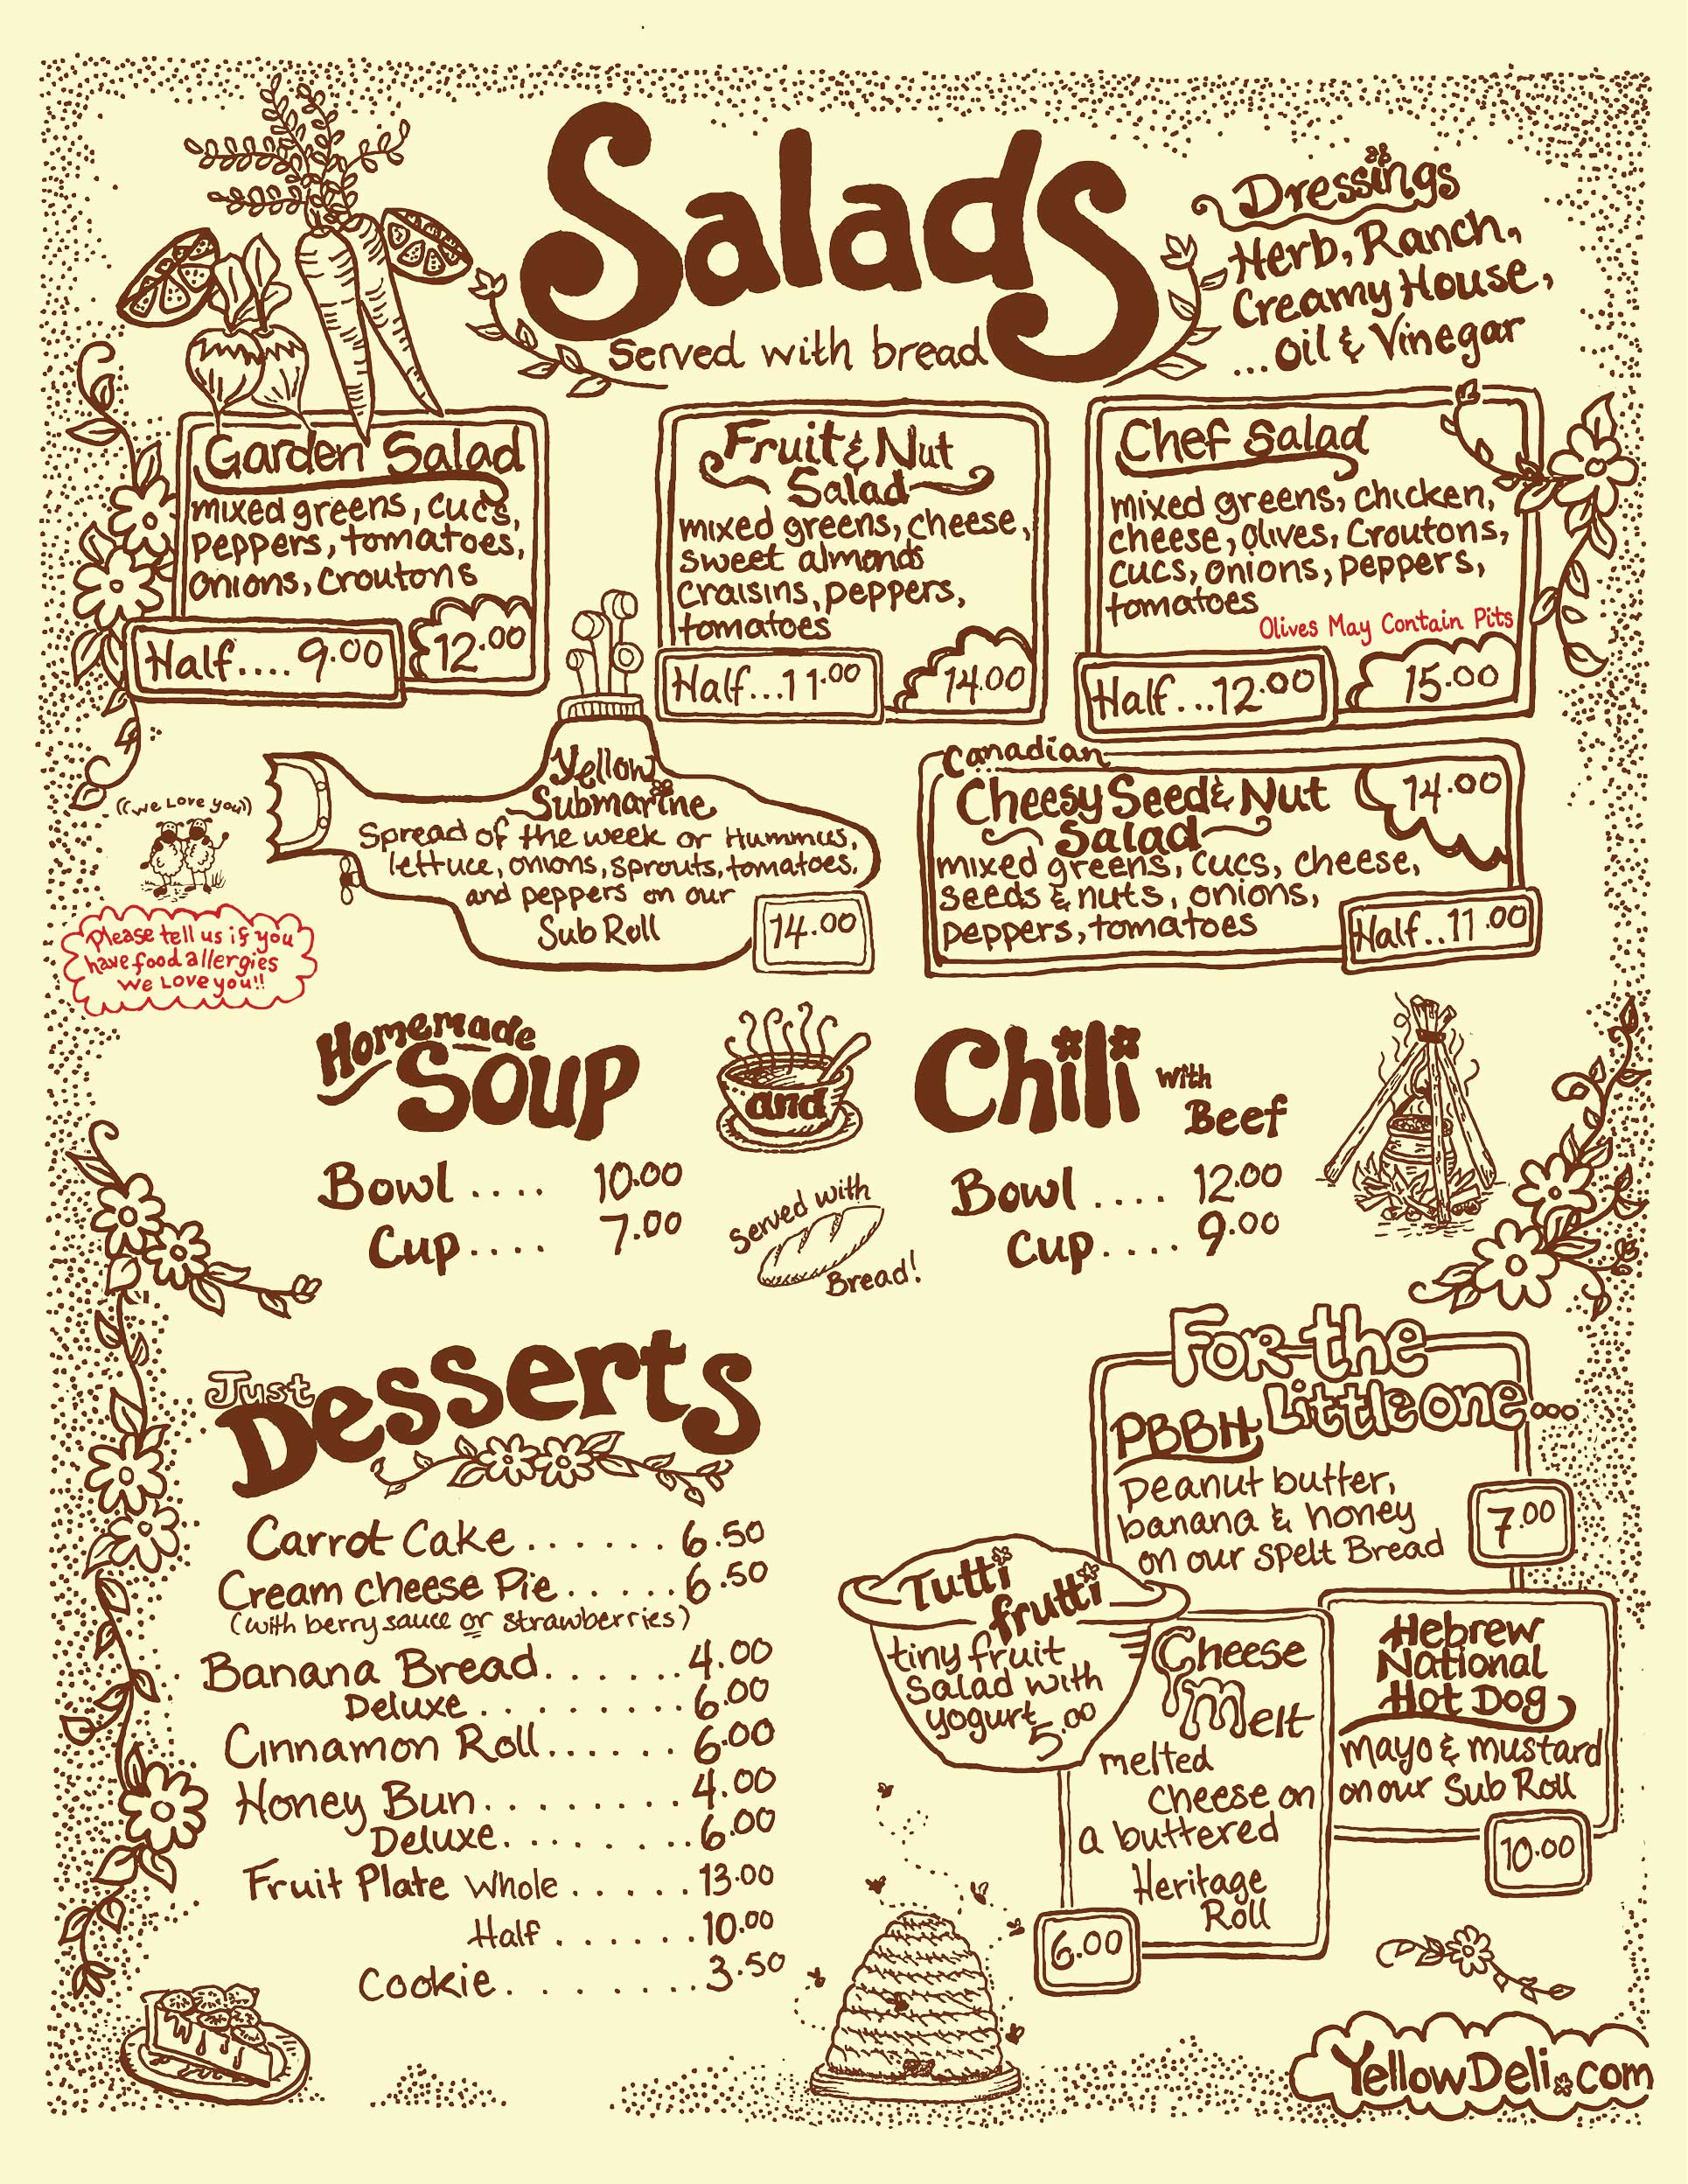 Salads
Served with bread
Dressings
Herb, Ranch,
Creamy House,
...oil & Vinegar
Garden Salad
mixed greens, cucs,
peppers, tomatoes,
onions, croutons
Half.... 9.00
12.00
Fruit & Nut
Salad
mixed greens, cheese,
sweet almonds
craisins, peppers,
tomatoes
Half...11.00
14.00
Chef Salad
mixed greens, chicken,
cheese, olives, Croutons,
cucs, onions, peppers,
tomatoes
Olives May Contain Pits
Half...12.00
15.00
((we Love you))
Please tell us if you
have food allergies
We Love you!!
Yellow
Submarine
Spread of the week or Hummus,
lettuce, onions, sprouts, tomatoes,
and peppers on our
Sub Roll
14.00
Canadian
Cheesy Seed & Nut
Salad
14.00
mixed greens, cucs, cheese,
seeds & nuts, onions,
peppers, tomatoes
Half..11.00
Homemade
Soup
and
Chili with
Beef
Bowl .... 10.00
Cup .... 7.00
Served with
Bread!
Bowl .... 12.00
Cup .... 9.00
Just
Desserts
Carrot Cake ...... 6.50
Cream cheese Pie ..... 6.50
(with berry sauce or strawberries)
Banana Bread ...... 4.00
Deluxe ........ 6.00
Cinnamon Roll ...... 6.00
Honey Bun ........ 4.00
Deluxe ........ 6.00
Fruit Plate Whole ..... 13.00
Half ...... 10.00
Cookie ....... 3.50
For the
Little one...
PBBH
peanut butter,
banana & honey
on our spelt Bread
7.00
Tutti
frutti
tiny fruit
Salad with
yogurt
5.00
Cheese
Melt
melted
cheese on
a buttered
Heritage
Roll
6.00
Hebrew
National
Hot Dog
mayo & mustard
on our Sub Roll
10.00
YellowDeli.com